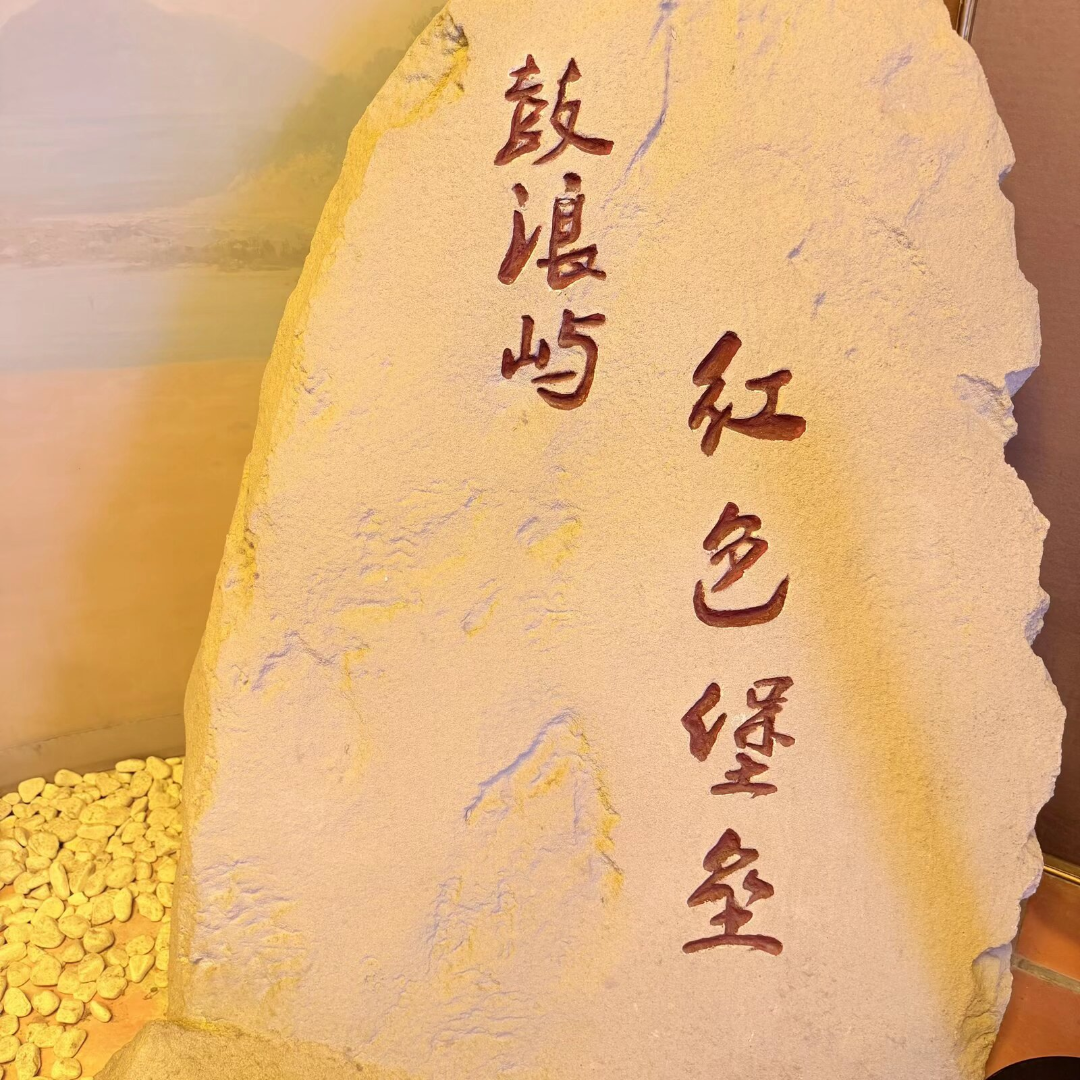 鼓浪屿
红色堡垒